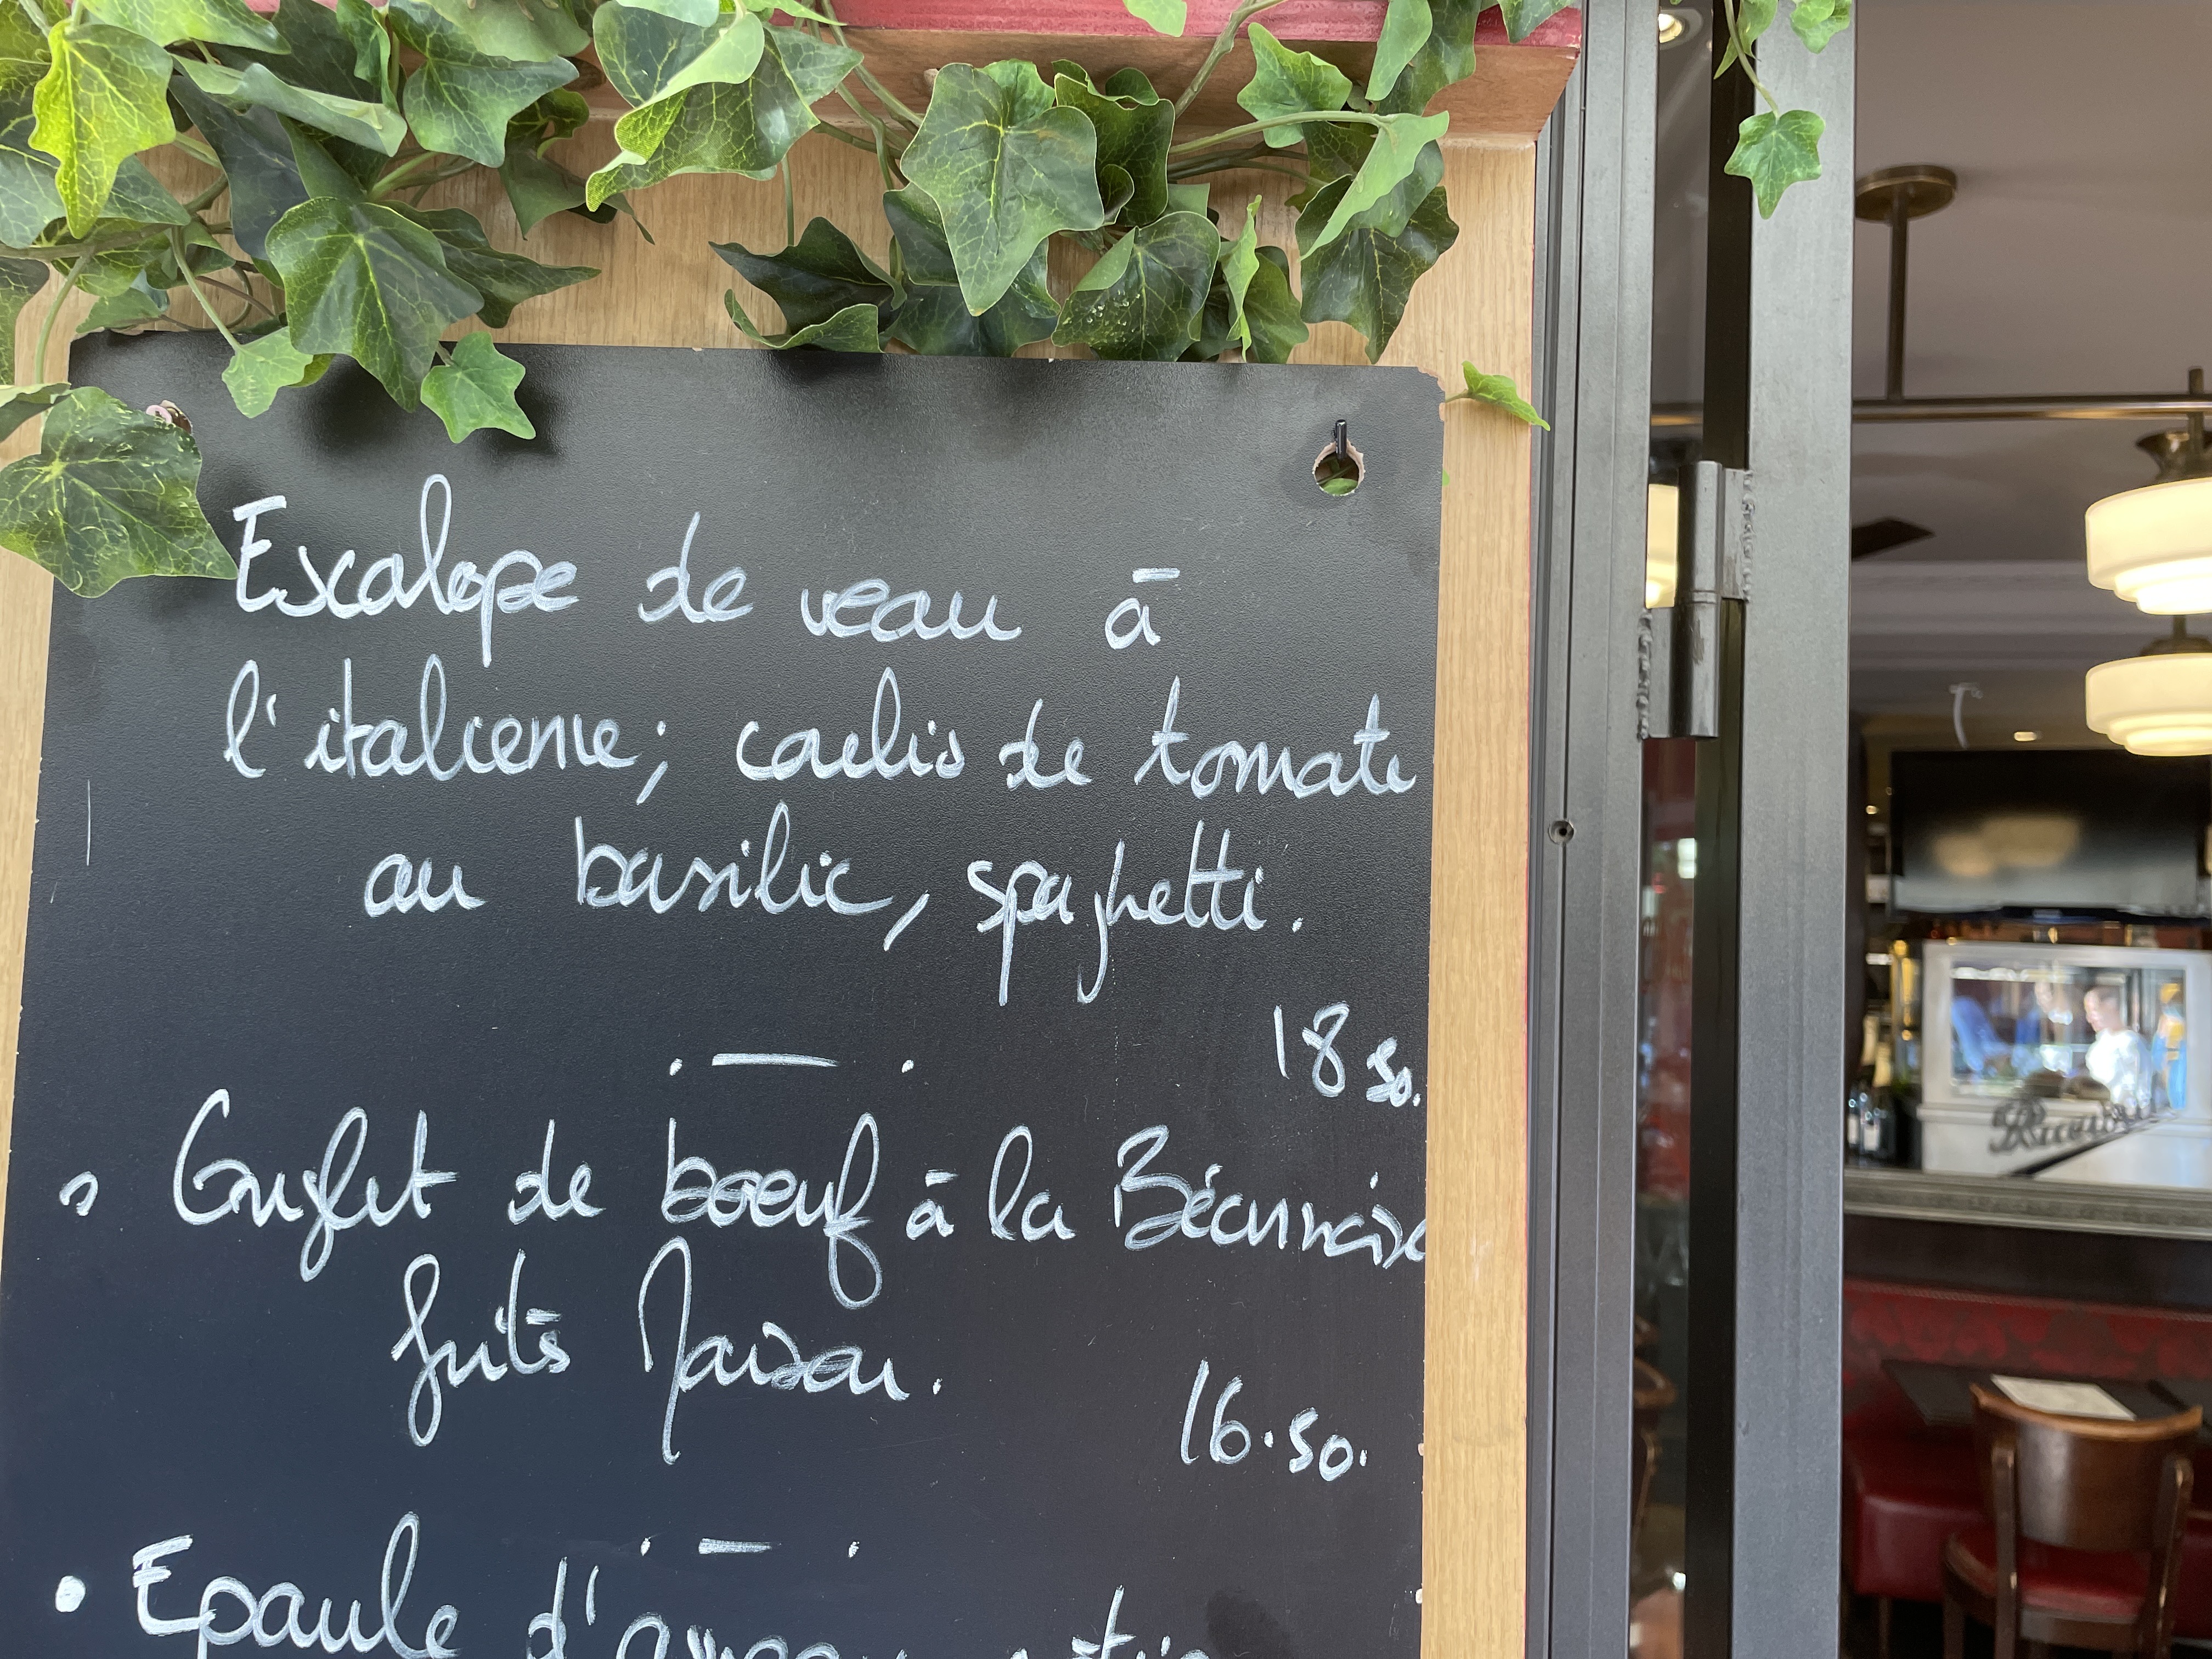 Escalope de veau à
l'italienne; coulis de tomate
au basilic, spaghetti.
18 50.
Onglet de boeuf à la Béarnaise
frites Maison.
16.50.
• Epaule d'agneau
Ricard